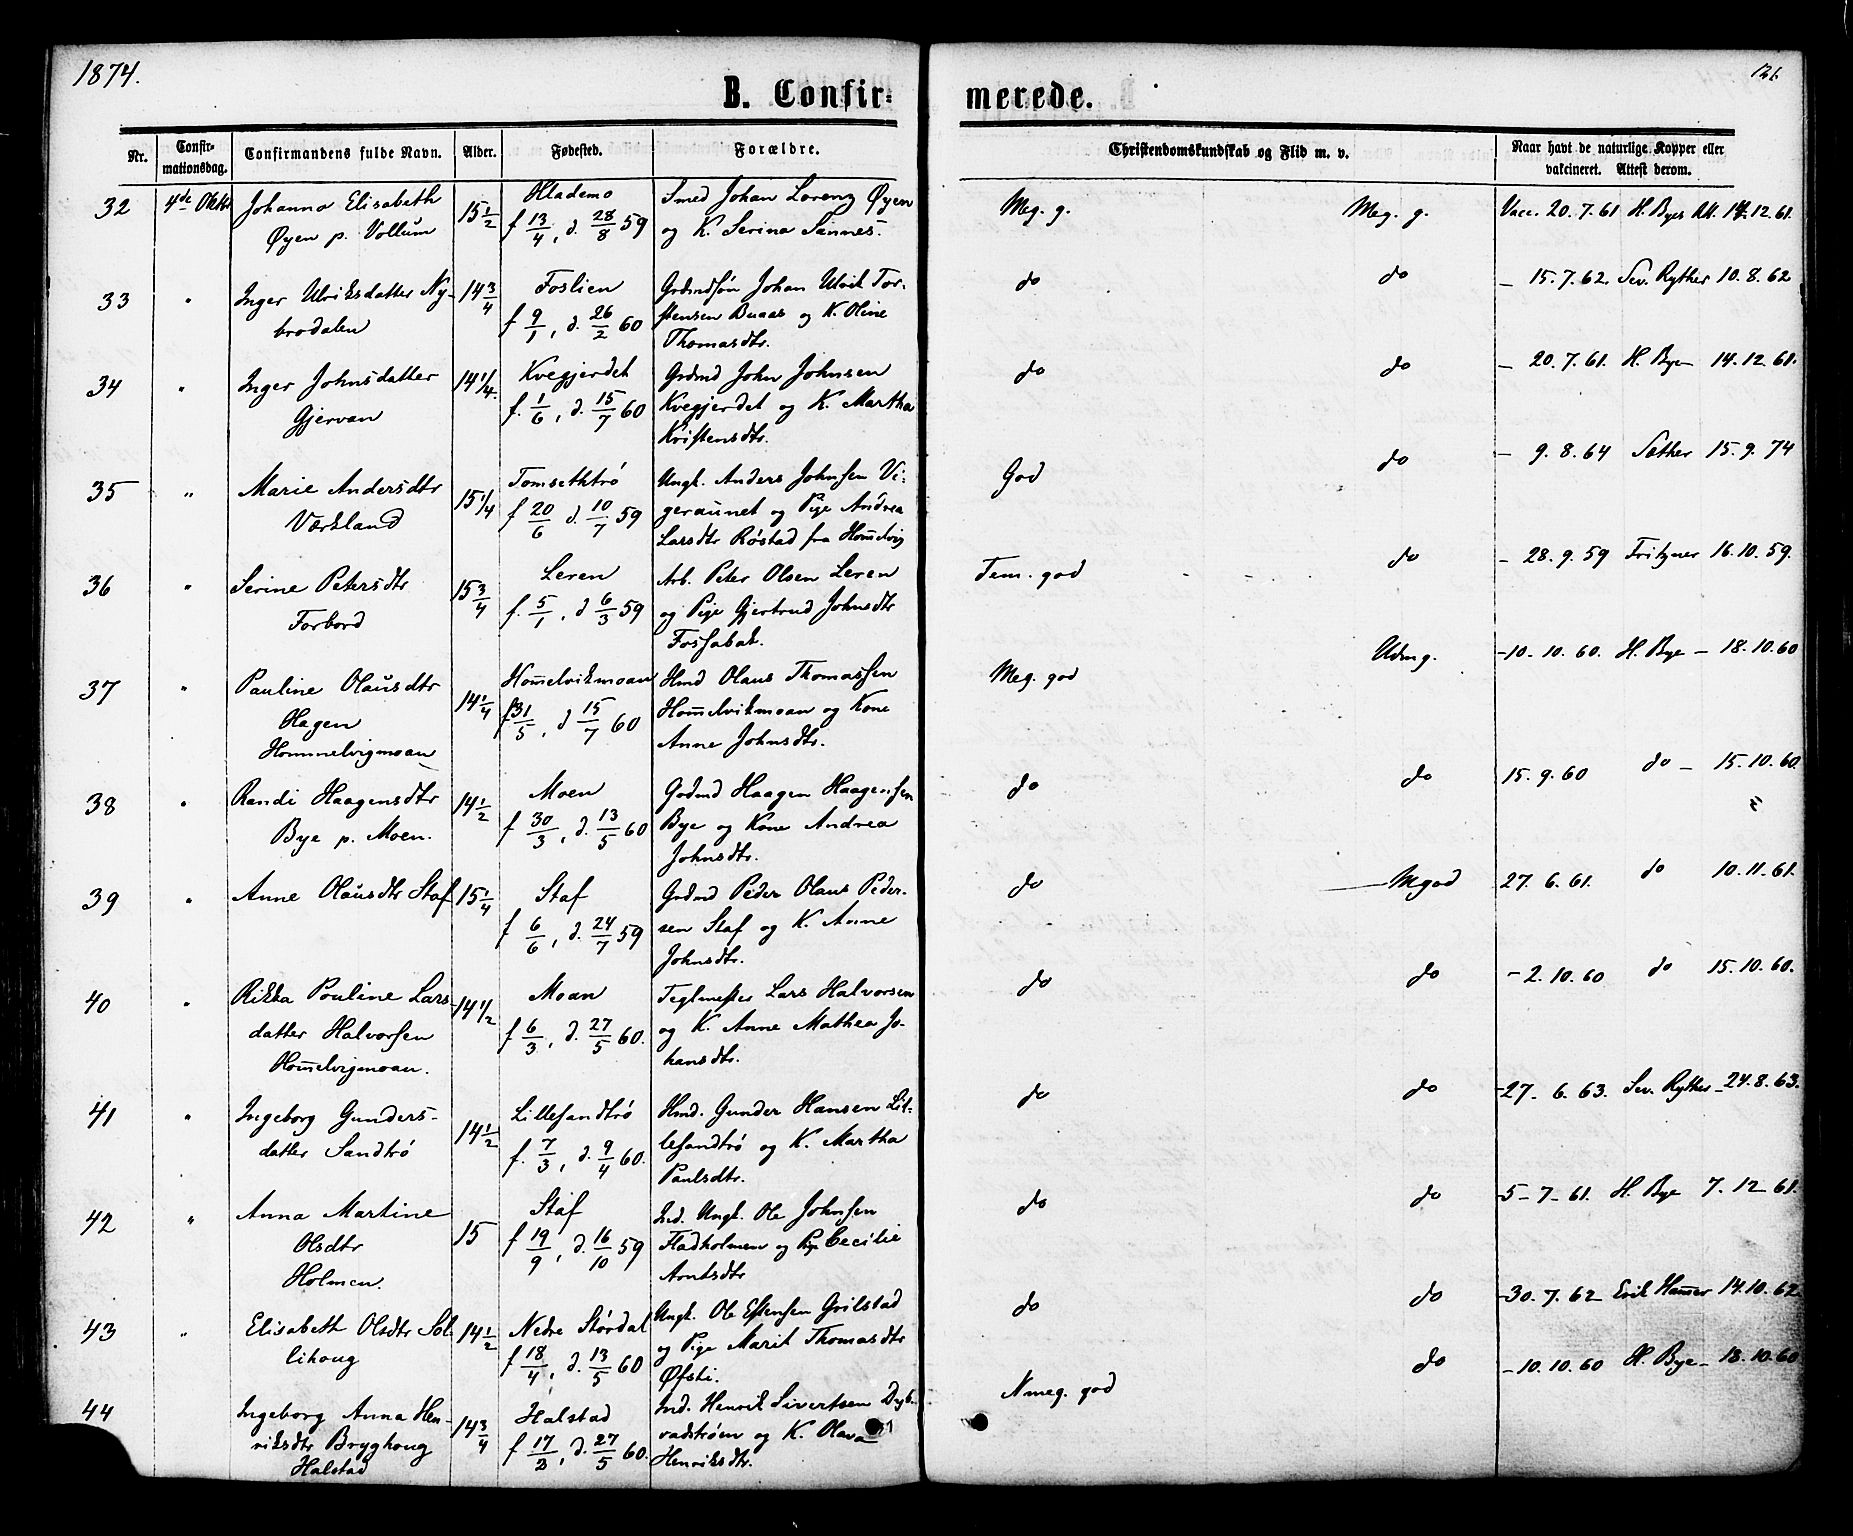 1874.
126
B. Confir-
merede.
Nr.
Confir-
mationsdag.
Confirmandens fulde Navn.
Alder.
Fødested.
Forældre.
Christendomskundskab og Flid m. v.
Naar havt de naturlige Kopper eller
vakcineret. Attest derom.
32 4de Oktbr Johanna Elisabeth 15 1/2 Smed Johan Lorenz Øyen Meg. g. Meg. g. Vacc. 20.7.61 H. Bye 12.61.
Øyen p. Vollum f 13/4, d. 28/8 59 og K. Serina Sannes.
33 " Inger Ulriksdatter Ny- 14 3/4 Foslien Grdmdsøn Johan Ulrik Tor- do do - 15.7.62. Sev. Ryther 10.8.62
brodalen f 9/1, d. 26/2 60 stensen Buaas og K. Oline
Thomasdtr.
34 " Inger Johnsdatter 14 1/4 Kvegjerdet Grdmd John Johnsen do do - 20.7.61. H. Bye 14.12.61.
Gjervan f. 1/6, d. 15/7 60 Kvegjerdet og K. Martha
Kristensdtr.
35 " Marie Andersdtr 15 1/4 Tomsethtrø Ungk. Anders Johnsen Vi- God do - 9.8.64 Sæther 15.9.74
Værkland f 20/6 d. 10/7 59 geraunet og Pige Andrea
Larsdtr Røstad fra Hommelvig
36 " Serine Petersdtr 15 3/4 Leren Arb. Peter Olsen Leren Tem. god do - 28.9.59 Fritzner 16.10.59.
Forbord f. 5/1, d 6/3 59 og Pige Gjertrud Johnsdtr
37 " Pauline Olausdtr 14 1/4 Hommelvikmoan Hmd Olaus Thomassen Meg. god Udm g. -10.10.60. H. Bye - 18.10.60
Hagen f 31/5, d 15/7 60 Hommelvikmoan og Kone
Hommelvigmoan Anne Johnsdtr.
38 " Randi Haagensdtr 14 1/2 Moen Grdmd Haagen Haagensen do do 15.9.60 do - 15.10.60
Bye p. Moen. f 30/3, d. 13/5 60 Bye og Kone Andrea
Johnsdtr.
39 " Anne Olausdtr Staf 15 1/4 Staf Grdmd Peder Olaus Peder- do Mgod 27.6.61. do 10.11.61.
f 6/6, d. 24/7 59 sen Staf og K. Anne
Johnsdtr.
40 " Rikka Pouline Lars- 14 1/2 Moan Teglmester Lars Halvorsen do do - 2.10.60 do 15.10.60.
datter Halvorsen f 6/3, d. 27/5 60. og K. Anne Mathea Jo-
Hommelvigmoan. hansdtr.
41 " Ingeborg Gunders- 14 1/2 Lillesandtrø Hmd. Gunder Hansen Lil- do do -27.6.63. Sev. Ryther - 24.8.63.
datter Sandtrø f. 7/3, d. 9/4 60. lesandtrø og K. Martha
Paulsdtr.
42 " Anna Martine 15 Staf Ind. Ungk. Ole Johnsen do do -5-7-61. H. Bye 7.12-61.
Olsdtr f 19/9, d. 16/10 59 Fladholmen og Pige Cecilie
Holmen. Arntsdtr
43 " Elisabeth Olsdtr Sol- 14 1/2 Nedre Størdal Ungk. Ole Estensen Grilstad do do -30.7.62 Erik 14.10.62.
lihoug f 18/4, d. 13/5 60 og Pige Marit Thomasdtr
Øfsti.
44 Ingeborg Anna Hen- 14 3/4 Halstad Ind. Henrik Sivertsen Dyb- Nmeg. god do -10.10.60 H. Bye - 18.10.60
riksdtr Bryghoug f 17/2, d. 27/5 60. vadstrøen og K. Olava
Halstad Henriksdtr.